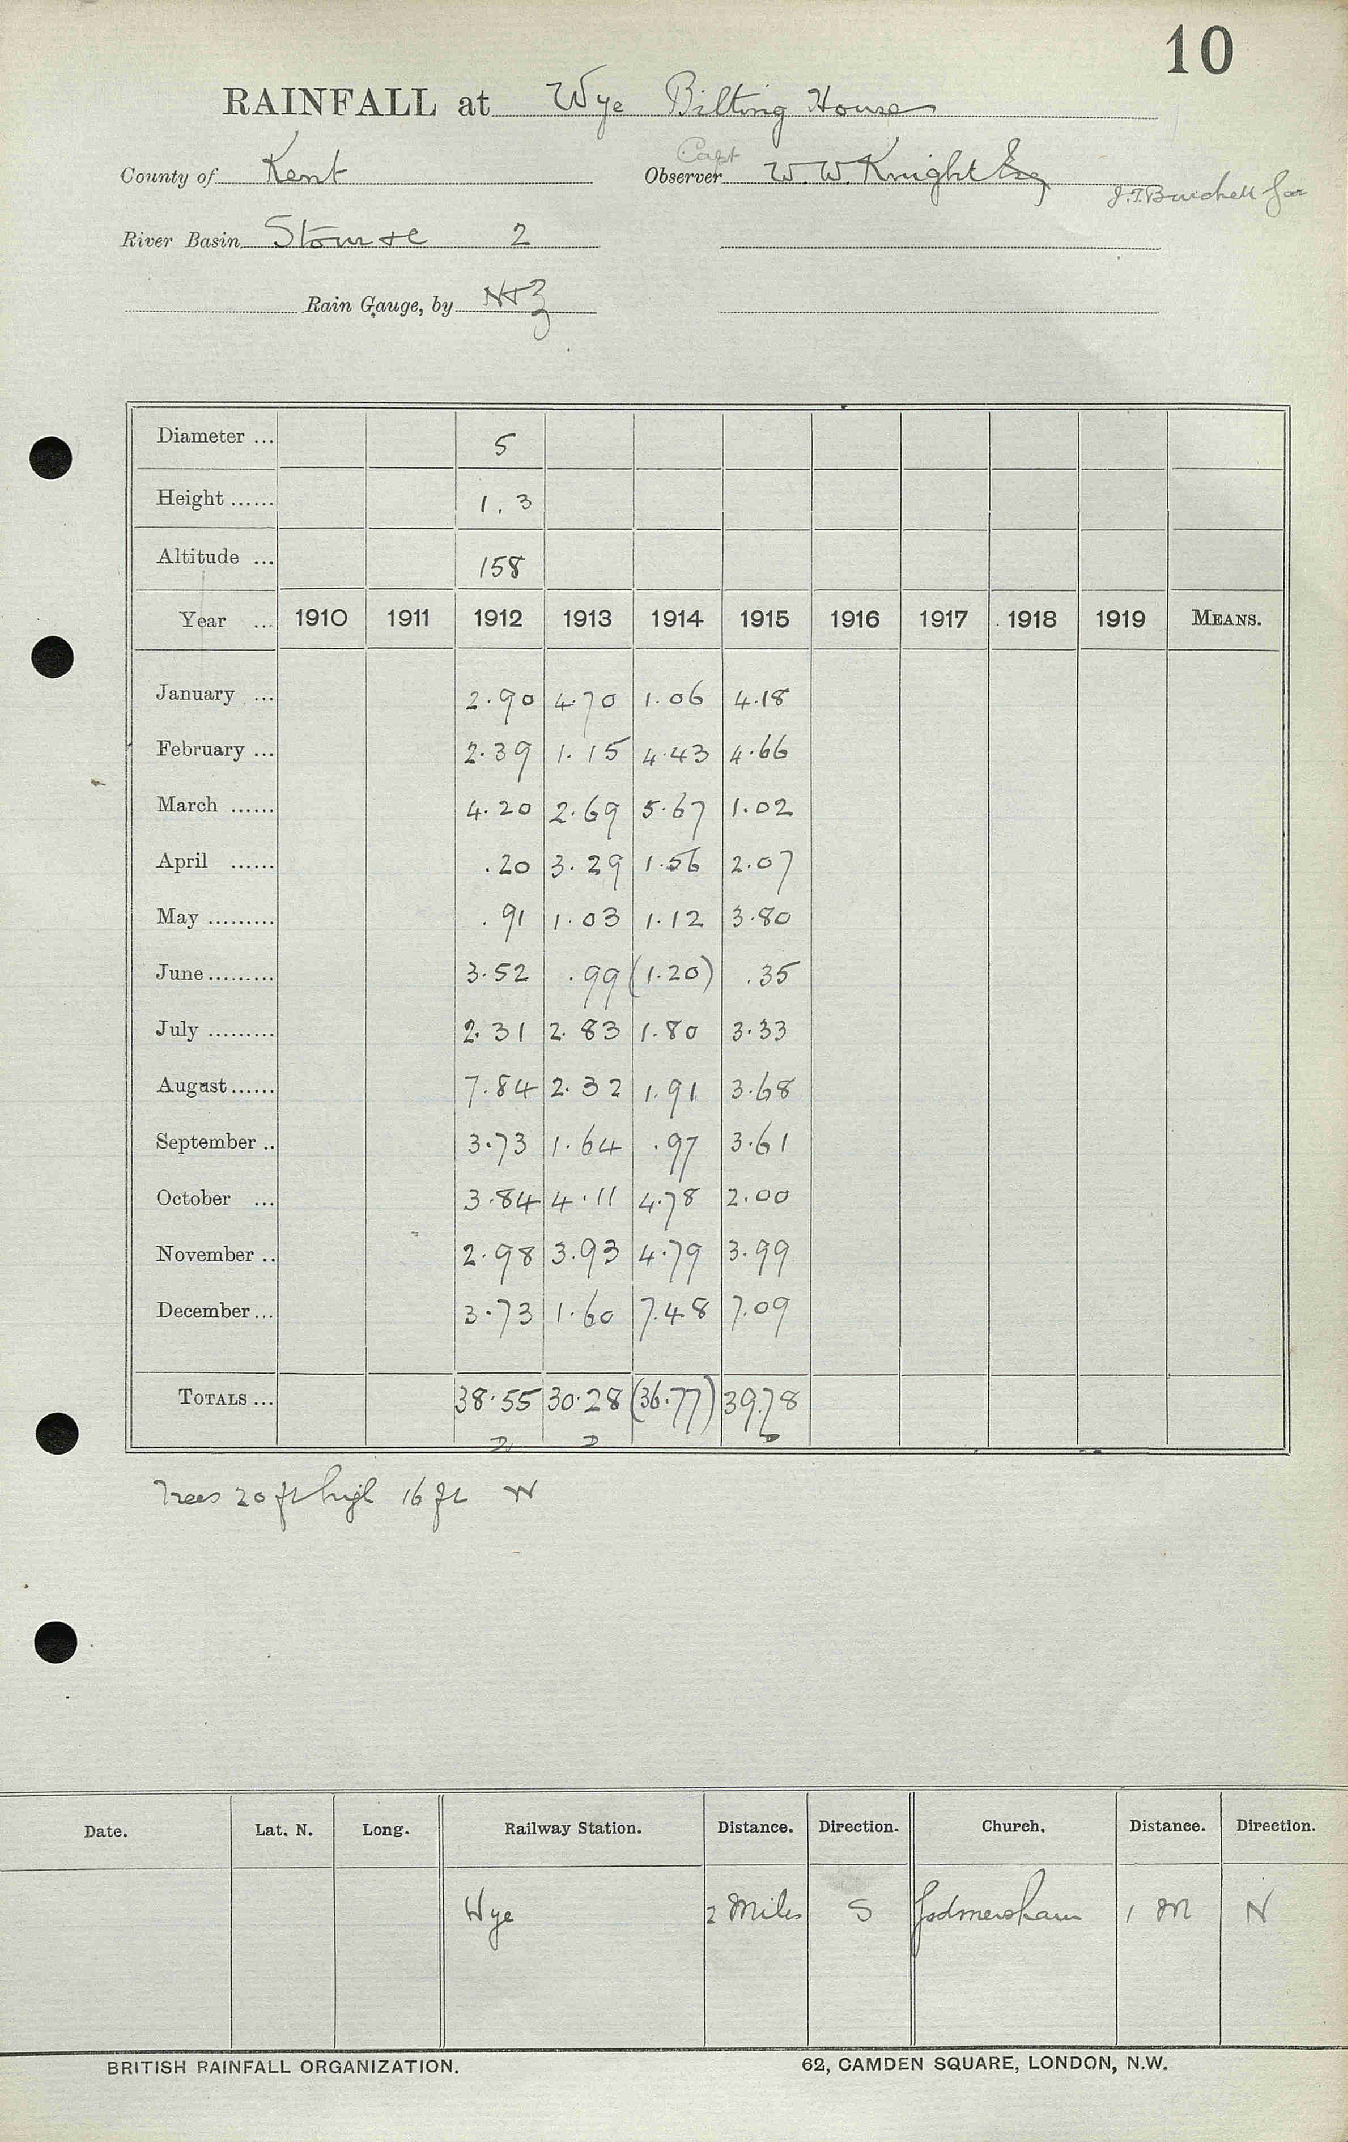 10
RAINFALL at Wye Bilting House
County of Kent
Capt
Observer W. W. Knight Esq
River Basin Stour &c 2
Rain Gauge, by N&Z
Diameter ... 5
Height ...... 1.3
Altitude ... 158
Year ... 1910 1911 1912 1913 1914 1915 1916 1917 1918 1919 MEANS.
January ... 2.90 4.70 1.06 4.18
February ... 2.39 1.15 4.43 4.66
March ...... 4.20 2.69 5.67 1.02
April ...... .20 3.29 1.56 2.07
May ......... .91 1.03 1.12 3.80
June ......... 3.52 .99 (1.20) .35
July ......... 2.31 2.83 1.80 3.33
August ...... 7.84 2.32 1.91 3.68
September .. 3.73 1.64 .97 3.61
October ... 3.84 4.11 4.78 2.00
November .. 2.98 3.93 4.79 3.99
December ... 3.73 1.60 7.48 7.09
TOTALS ... 38.55 30.28 (36.77) 39.78
Trees 20 ft high 16 ft W
Date. Lat. N. Long. Railway Station. Distance. Direction. Church. Distance. Direction.
Wye 2 Miles S Godmersham 1 M N
BRITISH RAINFALL ORGANIZATION. 62, CAMDEN SQUARE, LONDON, N.W.